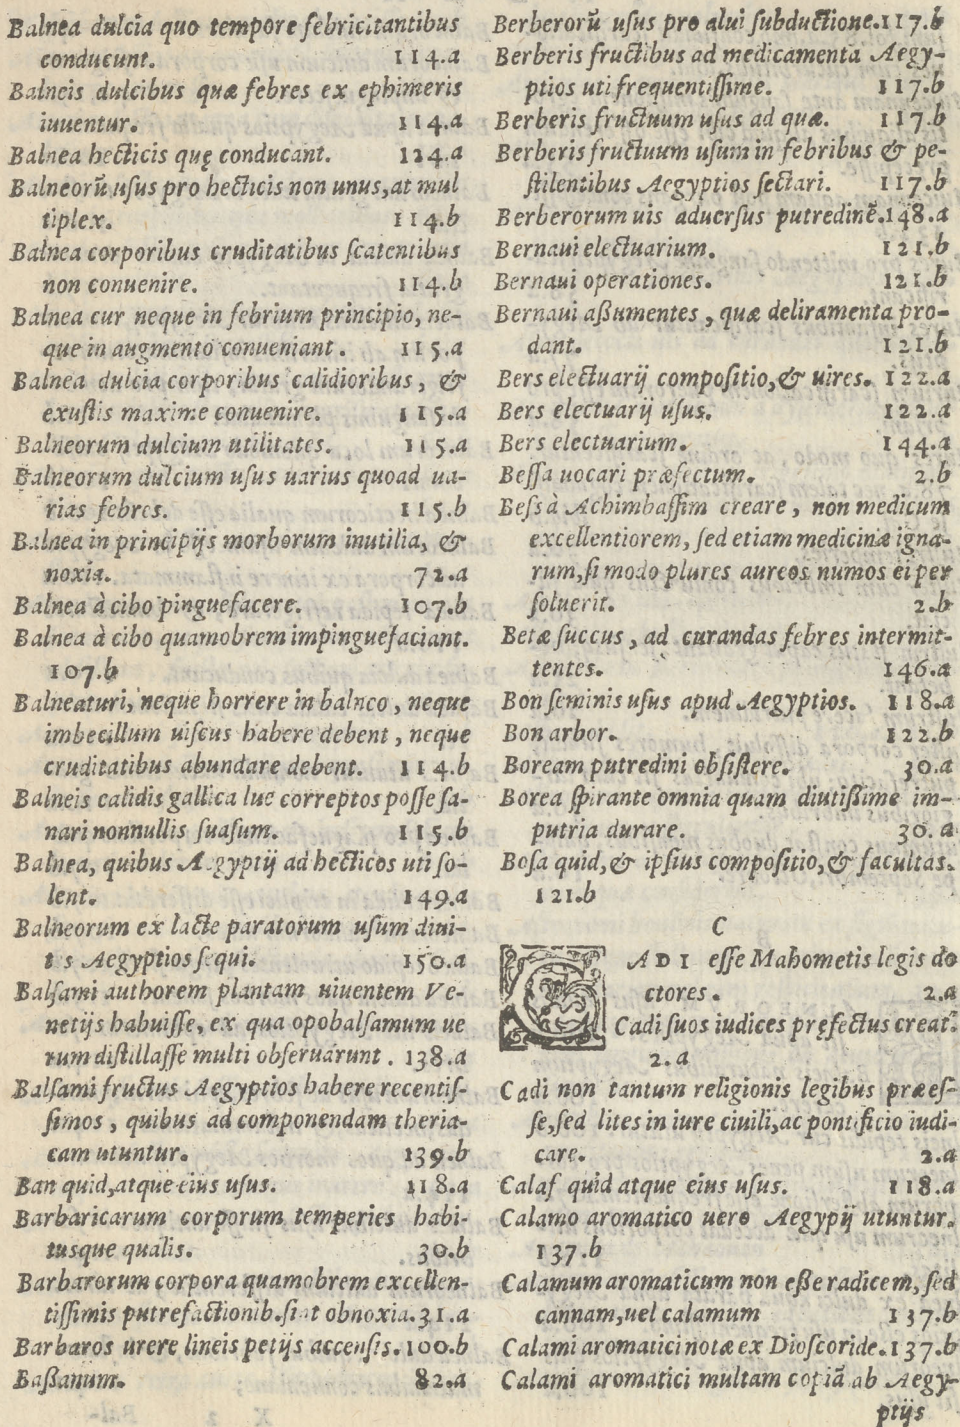 Balnea dulcia quo tempore febricitantibus
conducunt. 114.a
Balneis dulcibus quæ febres ex ephimeris
iuuentur. 114.a
Balnea hecticis quę conducant. 124.a
Balneorũ usus pro hecticis non unus,at mul
tiplex. 114.b
Balnea corporibus cruditatibus scatentibus
non conuenire. 114.b
Balnea cur neque in febrium principio, ne-
que in augmento conueniant. 115.a
Balnea dulcia corporibus calidioribus, &
exustis maxime conuenire. 115.a
Balneorum dulcium utilitates. 115.a
Balneorum dulcium usus uarius quoad ua-
rias febres. 115.b
Balnea in principijs morborum inutilia, &
noxia. 72.a
Balnea à cibo pinguefacere. 107.b
Balnea à cibo quamobrem impinguefaciant.
107.b
Balneaturi, neque horrere in balneo, neque
imbecillum uiscus habere debent, neque
cruditatibus abundare debent. 114.b
Balneis calidis gallica lue correptos posse sa-
nari nonnullis suasum. 115.b
Balnea, quibus Aegyptij ad hecticos uti so-
lent. 149.a
Balneorum ex lacte paratorum usum diui-
t s Aegyptios sequi. 150.a
Balsami authorem plantam uiuentem Ve-
netijs habuisse, ex qua opobalsamum ue
rum distillasse multi obseruarunt. 138.a
Balsami fructus Aegyptios habere recentis-
simos, quibus ad componendam theria-
cam utuntur. 139.b
Ban quid,atque eius usus. 118.a
Barbaricarum corporum temperies habi-
tusque qualis. 30.b
Barbarorum corpora quamobrem excellen-
tissimis putrefactionib.sint obnoxia. 31.a
Barbaros urere lineis petijs accensis. 100.b
Baßanum. 82.a
Berberorũ usus pro alui subductione. 117.b
Berberis fructibus ad medicamenta Aegy-
ptios uti frequentissime. 117.b
Berberis fructuum usus ad quæ. 117.b
Berberis fructuum usum in febribus & pe-
stilentibus Aegyptios sectari. 117.b
Berberorum uis aduersus putredinẽ. 148.a
Bernaui electuarium. 121.b
Bernaui operationes. 121.b
Bernaui aßumentes, quæ deliramenta pro-
dant. 121.b
Bers electuarij compositio,& uires. 122.a
Bers electuarij usus. 122.a
Bers electuarium. 144.a
Bessa uocari præfectum. 2.b
Bess à Achimbassim creare, non medicum
excellentiorem, sed etiam medicinæ igna-
rum,si modo plures aureos numos ei per
soluerit. 2.b
Betæ succus, ad curandas febres intermit-
tentes. 146.a
Bon seminis usus apud Aegyptios. 118.a
Bon arbor. 122.b
Boream putredini obsistere. 30.a
Borea spirante omnia quam diutißime im-
putria durare. 30.a
Bosa quid,& ipsius compositio,& facultas.
121.b
C
CADI esse Mahometis legis do
ctores. 2.a
Cadi suos iudices pręfectus creat.
2.a
Cadi non tantum religionis legibus præes-
se,sed lites in iure ciuili,ac pontificio iudi-
care. 2.a
Calaf quid atque eius usus. 118.a
Calamo aromatico uero Aegypij utuntur.
137.b
Calamum aromaticum non eße radicem, sed
cannam,uel calamum 137.b
Calami aromatici notæ ex Dioscoride. 137.b
Calami aromatici multam copiã ab Aegy-
ptijs